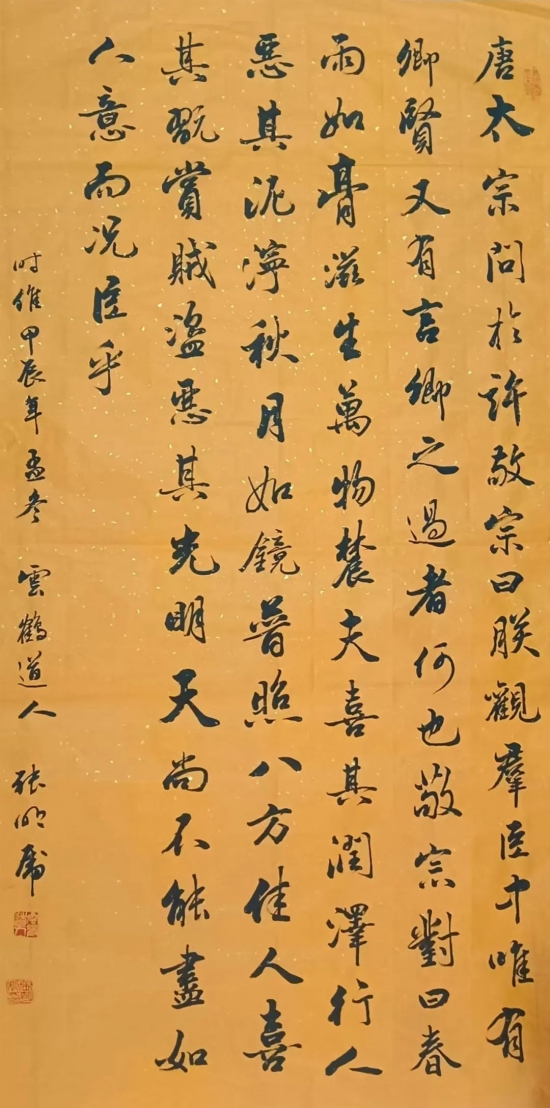 唐太宗問於許敬宗曰朕觀羣臣中唯有
卿賢又有言卿之過者何也敬宗對曰春
雨如膏滋生萬物農夫喜其潤澤行人
惡其泥濘秋月如鏡普照八方佳人喜
其翫賞賊盜惡其光明天尚不能盡如
人意而况臣乎
时維甲辰年孟冬 雲鶴道人 張明虎